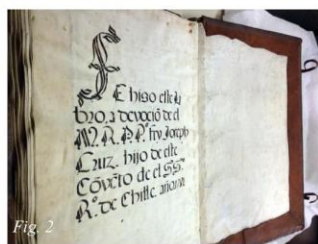 SE hiso este li
bro, a devociõ de el
M. R. P. P.º fry Joseph
Cruz. hijo de este
Cõvẽto de el SS.
R.º de Chille. año
Fig. 2